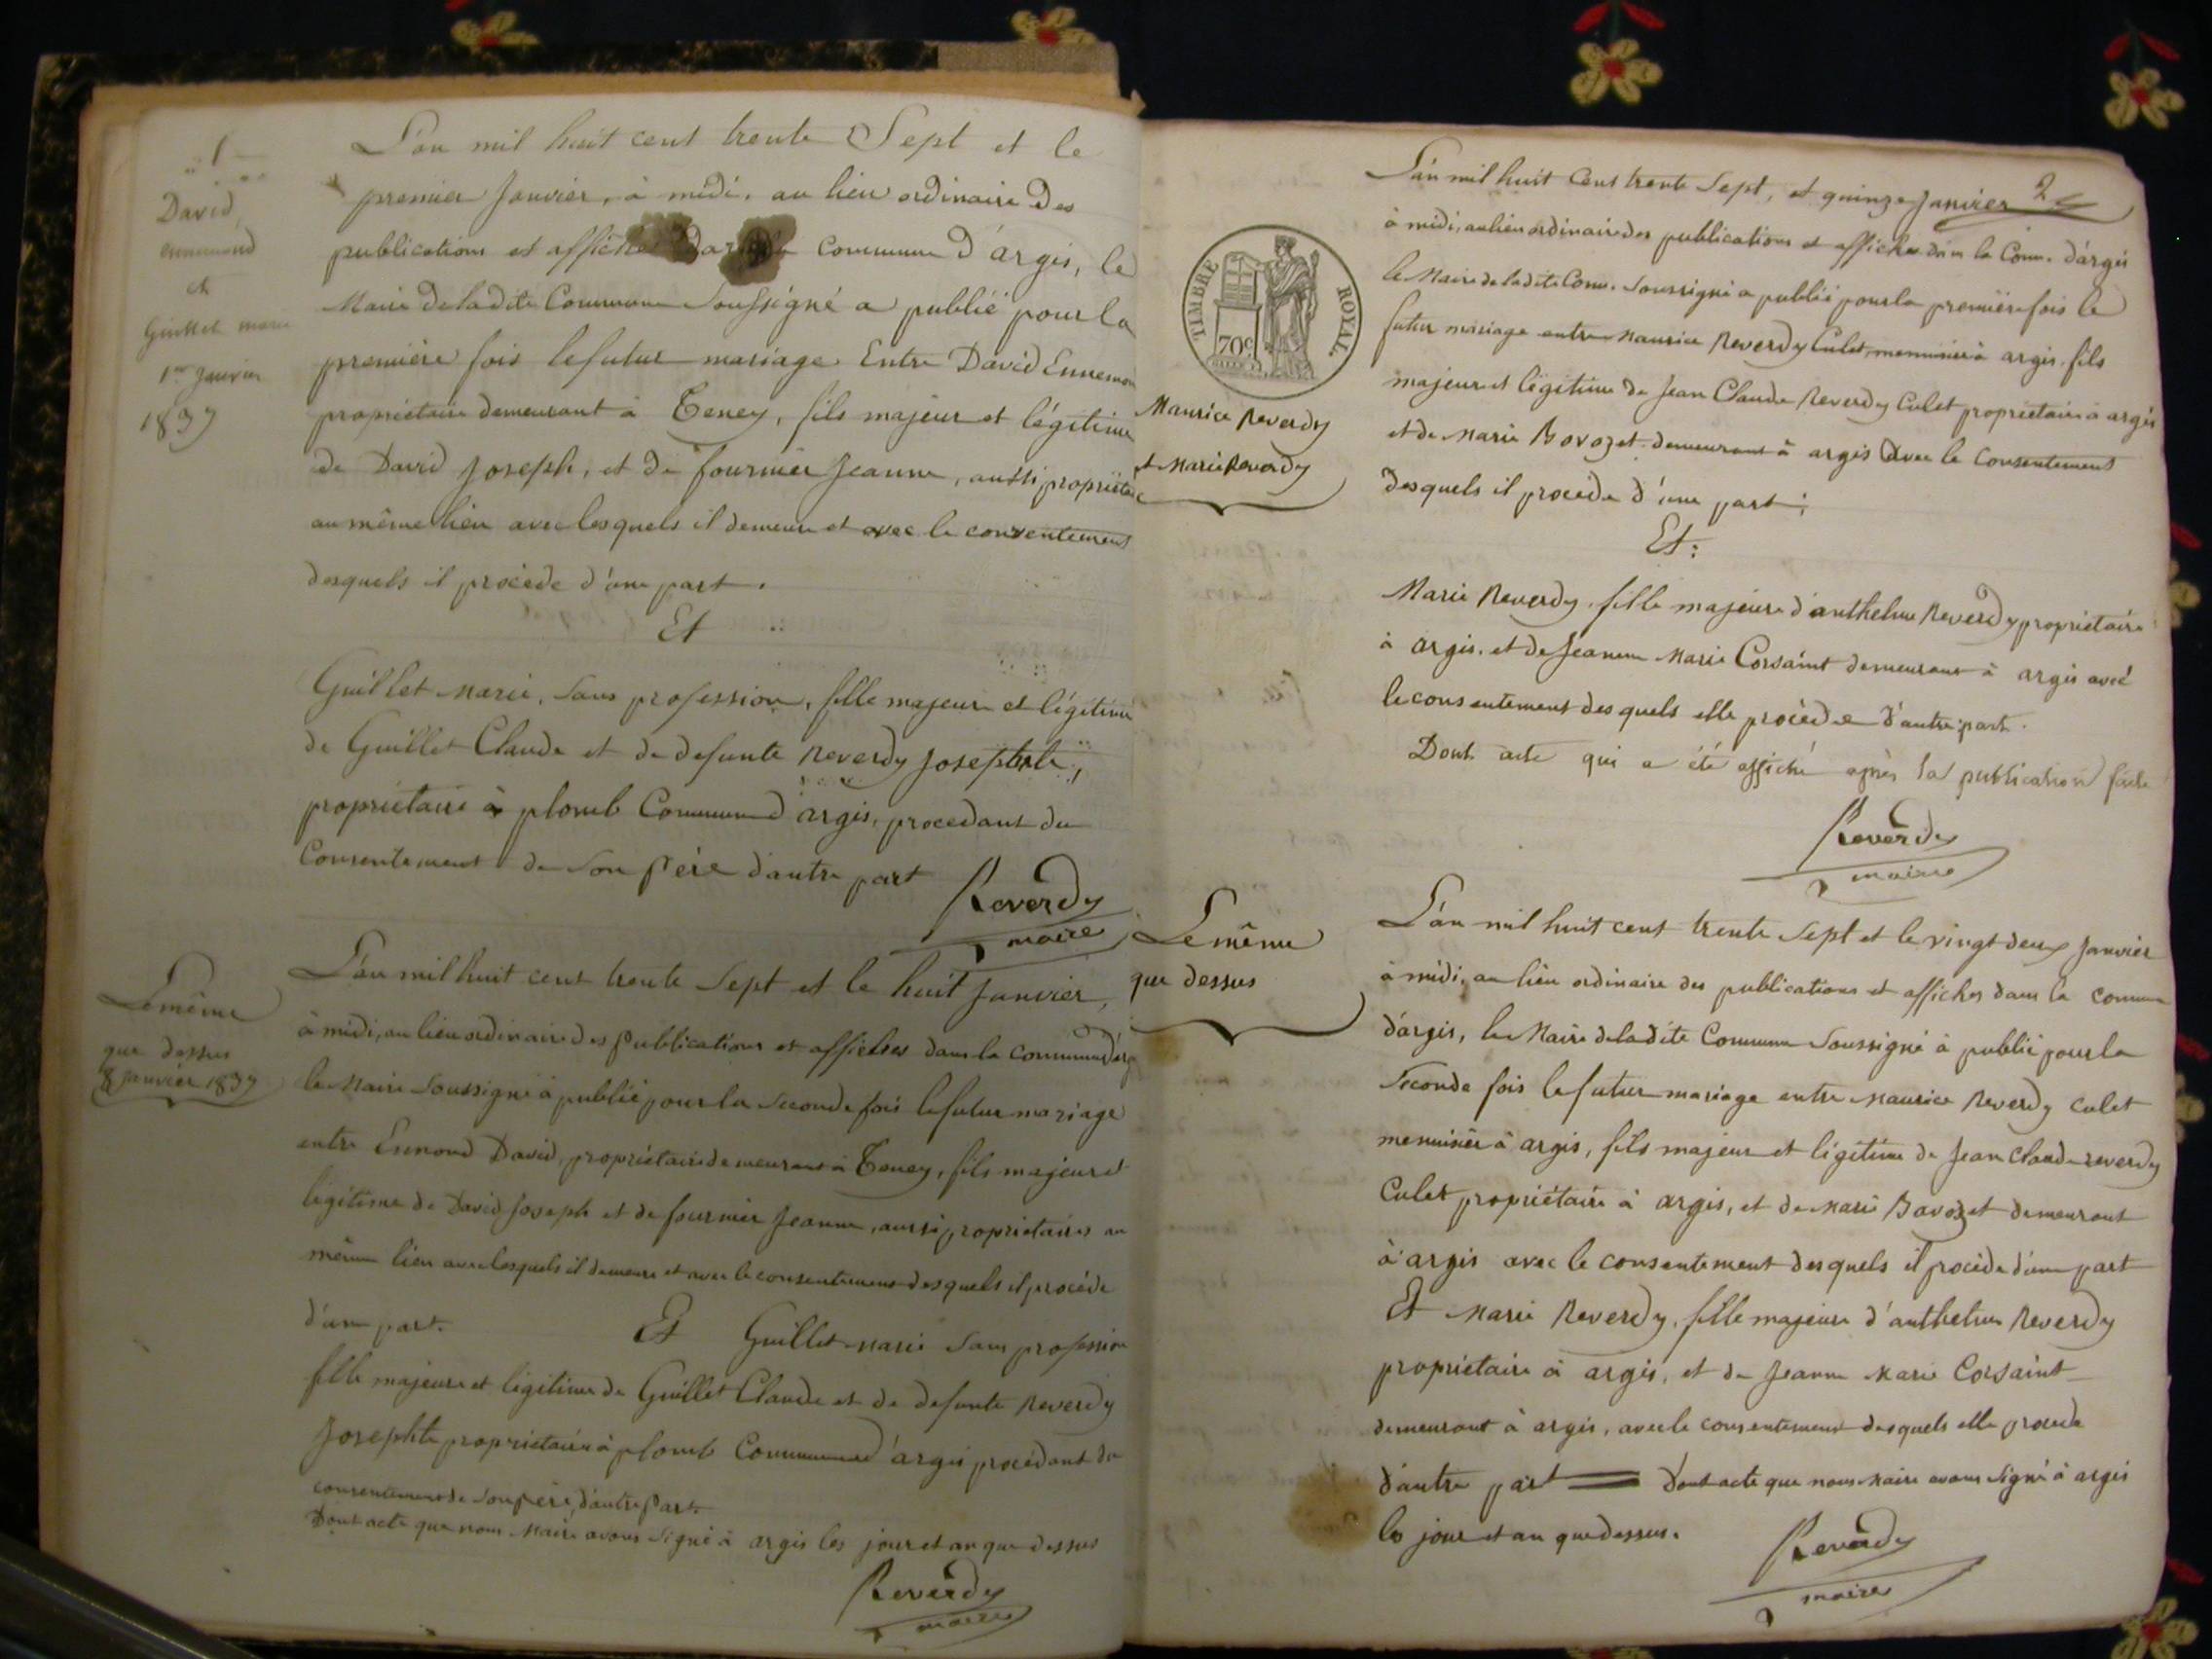 1
David
ennemond
et
Guillet marie
1er Janvier
1837
L'an mil huit cent trente Sept et le
premier Janvier, à midi, au lieu ordinaire des
publications et affiches dans la Commune d'argis, le
Maire de la dite Commune Soussigné a publié pour la
première fois le futur mariage Entre David Ennemon
propriétaire demeurant à Teney, fils majeur et légitime
de David Joseph, et de fournier Jeanne, aussi propriétaire
au même lieu avec lesquels il demeure et avec le consentement
desquels il procède d'une part.
Et
Guillet Marie, Sans profession, fille majeure et légitime
de Guillet Claude et de defunte Reverdy Josephte,
propriétaire à plomb Commune d'argis, procedant du
Consentement de Son Père d'autre part
Reverdy
maire
Le même
que dessus
8 Janvier 1837
L'an mil huit cent trente Sept et le huit Janvier,
à midi, au lieu ordinaire des Publications et affiches dans la commune d'arg
le Maire Soussigné à publié pour la Seconde fois le futur mariage
entre Ennond David, propriétaire demeurant à Teney, fils majeur et
légitime de David Joseph et de fournier Jeanne, aussi propriétaires au
même lieu avec lesquels il demeure et avec le consentement desquels il procède
d'une part. Et Guillet Marie Sans profession
fille majeure et légitime de Guillet Claude et de defunte Reverdy
Josephte propriétaire à plomb Commune d'argis procédant du
consentement de Son père, d'autre Part.
Dont acte que nous Maire avons Signé à argis les jour et an que dessus
Reverdy
maire
2
TIMBRE ROYAL.
70c
Maurice Reverdy
et Marie Reverdy
L'an mil huit Cent trente Sept, et quinze Janvier
à midi, au lieu ordinaire des publications et affiches dans la Comn. d'argis
le Maire de la dite Comn. Soussigné a publié pour la première fois le
futur mariage entre Maurice Reverdy Culet, menuisier à argis, fils
majeur et légitime de Jean Claude Reverdy Culet propriétaire à argis
et de Marie Bovozet demeurant à argis avec le Consentement
desquels il procède d'une part;
Et:
Marie Reverdy, fille majeure d'anthelme Reverdy propriétaire
à argis, et de Jeanne Marie Corsaint demeurant à argis avec
le consentement desquels elle procède d'autre part.
Dont acte qui a été affiché après la publication faite
Reverdy
maire
Le même
que dessus
L'an mil huit cent trente Sept et le vingt deux Janvier
à midi, au lieu ordinaire des publications et affiches dans la commune
d'argis, le Maire de la dite Commune Soussigné à publié pour la
Seconde fois le futur mariage entre Maurice Reverdy Culet
menuisier à argis, fils majeur et légitime de Jean Claude Reverdy
Culet propriétaire à argis, et de Marie Bavozet demeurant
à argis avec le consentement desquels il procède d'une part
Et Marie Reverdy, fille majeure d'anthelme Reverdy
propriétaire à argis, et de Jeanne Marie Corsaint
demeurant à argis, avec le consentement desquels elle procede
d'autre part Dont acte que nous Maire avons Signé à argis
les jour et an que dessus.
Reverdy
maire